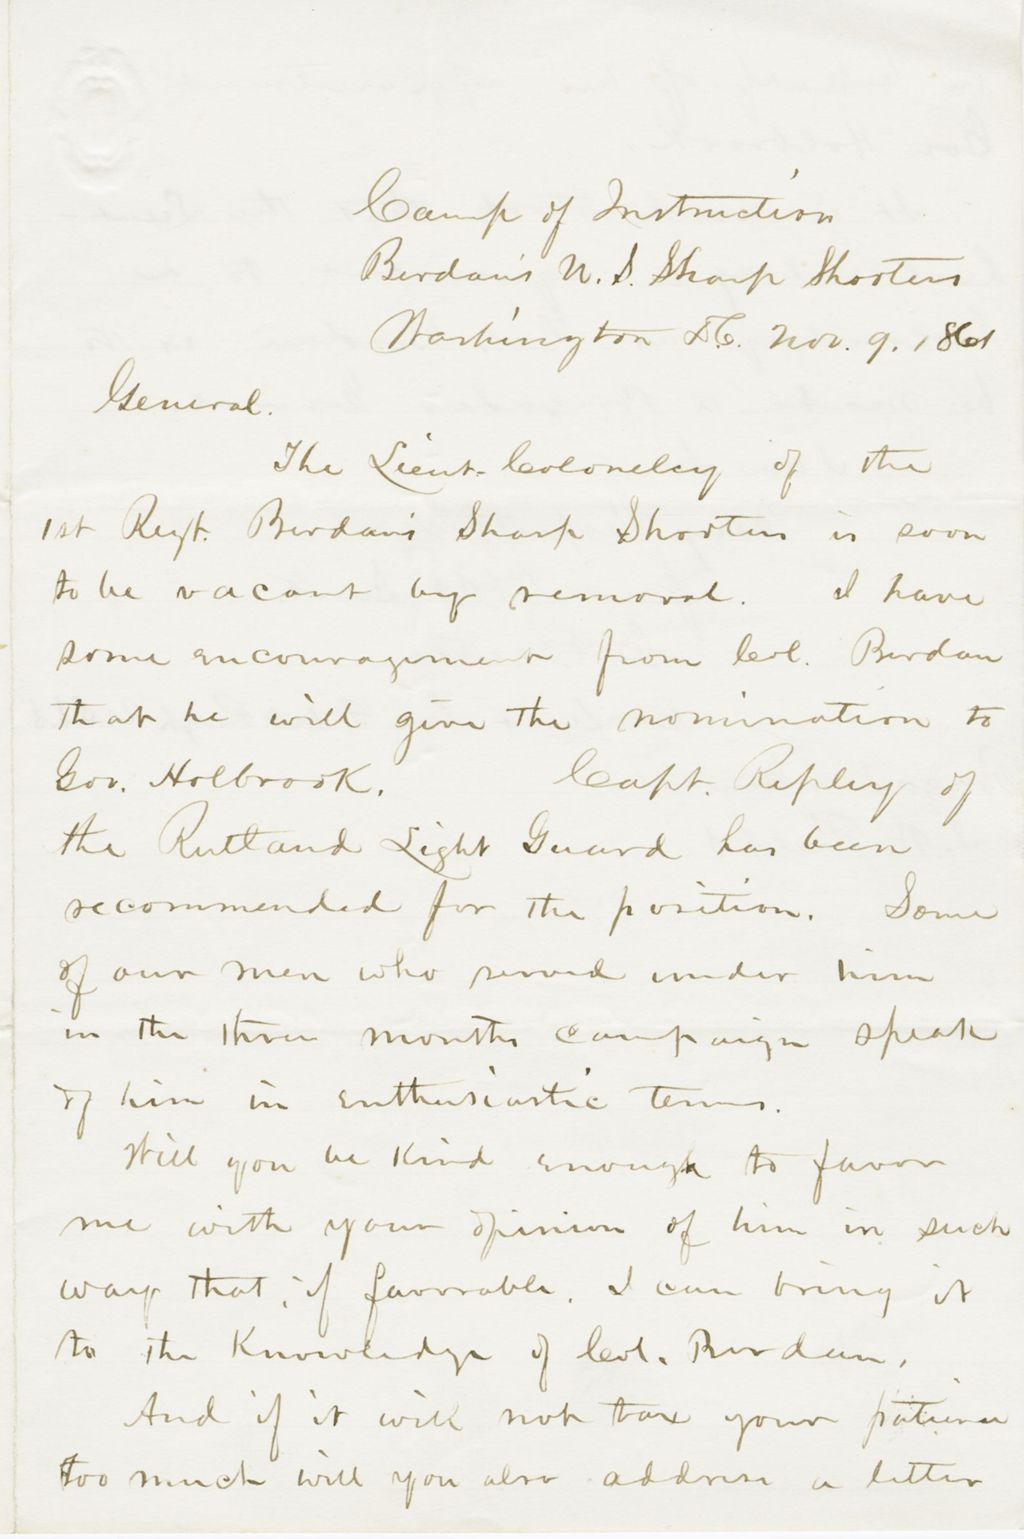 Camp of Instruction
Berdan's U. S. Sharp Shooters
Washington D.C. Nov. 9. 1861
General.
The Lieut. Colonelcy of the
1st Regt. Berdan's Sharp Shooters is soon
to be vacant by removal. I have
some encouragement from Col. Berdan
that he will give the nomination to
Gov. Holbrook. Capt. Ripley of
the Rutland Light Guard has been
recommended for the position. Some
of our men who served under him
in the three months campaign speak
of him in enthusiastic terms.
Will you be kind enough to favor
me with your opinion of him in such
way that, if favorable, I can bring it
to the knowledge of Col. Berdan.
And if it will not tax your patience
too much will you also address a letter